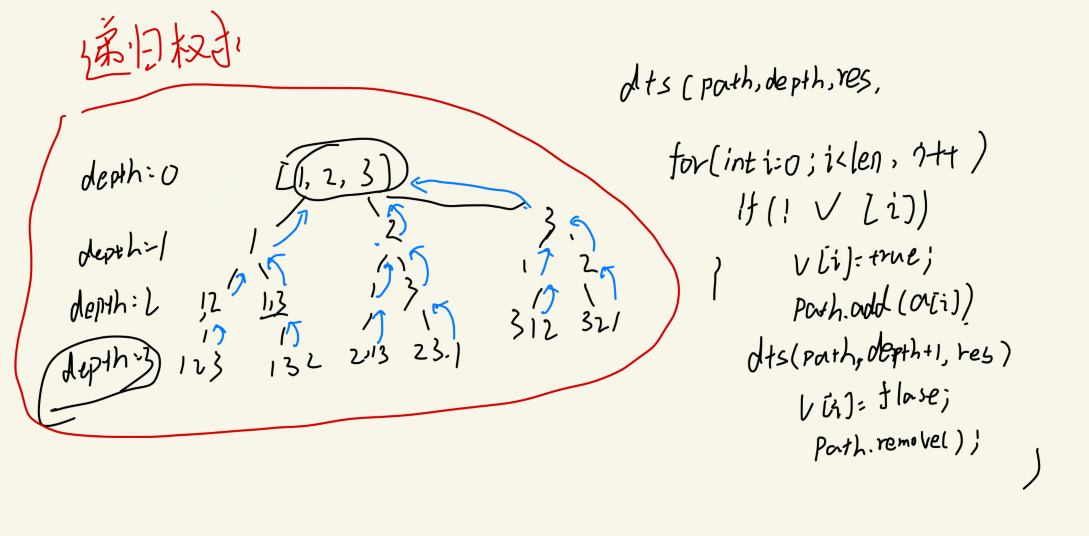 递归树
depth:0 [1, 2, 3]
depth=1 1 2 3
depth:2 1,2 1,3 1 3 1 2
depth=3 123 132 2,13 23.1 312 321
dts (path,depth,res,
for(int i=0; i<len, i++ )
if(! V [i])
{
V[i]=true;
path.add(a[i])
dts(path,depth+1, res)
V[i]= flase;
path.remove( ) ;
}